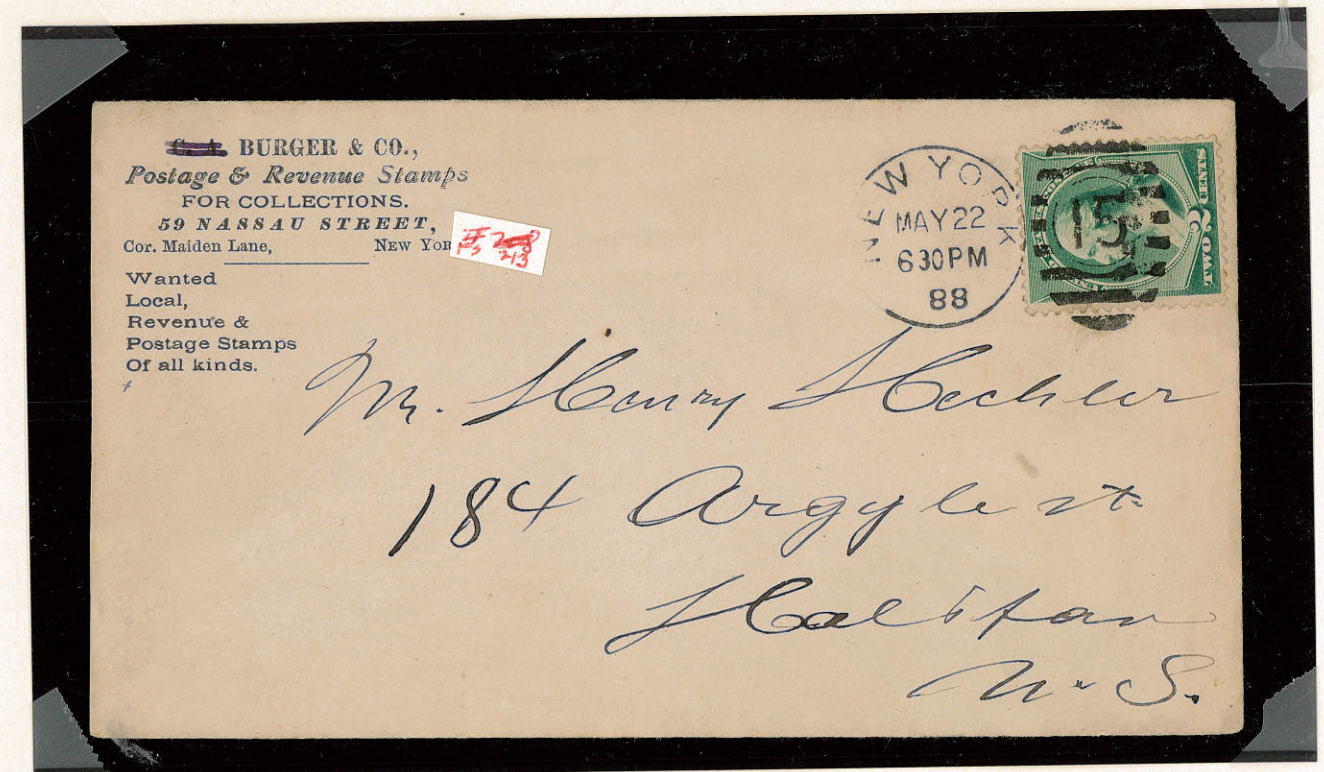 BURGER & CO.,
Postage & Revenue Stamps
FOR COLLECTIONS.
59 NASSAU STREET,
Cor. Maiden Lane, New Yor
Wanted
Local,
Revenue &
Postage Stamps
Of all kinds.
213
NEW YORK
MAY 22
630PM
88
15
TWO 2 CENTS
Mr. Henry Hechler
184 Argyle st
Halifax
N. S.